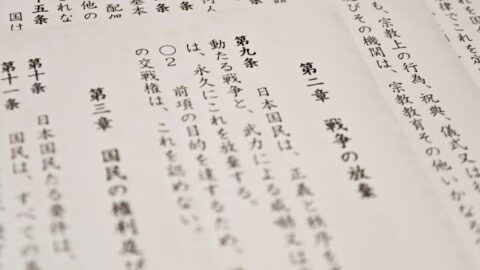 律でこれを
も、宗教上の行為、祝典、儀式又は
びその機関は、宗教教育その他いかなる
第二章 戦争の放棄
第九条 日本国民は、正義と秩序を
動たる戦争と、武力による威嚇又は
は、永久にこれを放棄する。
○2 前項の目的を達するため、
の交戦権は、これを認めない。
第三章 国民の権利及び
第十条 日本国民たる要件は、
第十一条 国民は、すべての基
何人
条
基本
他の
十五条